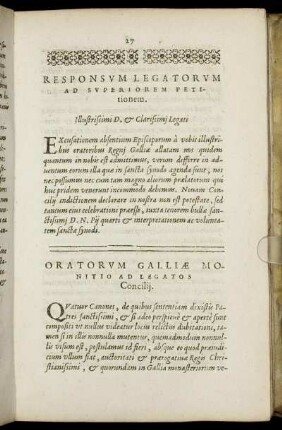 17
RESPONSVM LEGATORVM
AD SVPERIOREM PETI-
tionem.
Illustrissimi D. & Clarissimi Legati
EXcusationem absentium Episcoporum à vobis illustri-
bus oratoribus Regni Galliæ allatam nos quidem
quantum in nobis est admittimus, verum differre in ad-
uentum eorum illa quæ in sancta synodo agenda sunt, nos
nec possumus nec cum tam magno aliorum prælatorum qui
huc pridem venerunt incommodo debemus. Nouam Con-
cilij indictionem declarare in nostra non est potestate, sed
tantum eius celebrationi præesse, iuxta tenorem bullæ sanc-
tissimi D. N. Pij quarti & interpretationem ac volunta-
tem sanctæ synodi.
ORATORVM GALLIÆ MO-
NITIO AD LEGATOS
Concilij.
QVatuor Canones, de quibus sententiam dixistis Pa-
tres sanctissimi, & si adeo perspicuè & apertè sunt
compositi vt nullus videatur locus relictus dubitationi, ta-
men si in illis nonnulla mutentur, quemadmodum nonnul-
lis visum est, postulamus id fieri, absque eo quod præiudi-
cium vllum fiat, auctoritati & prærogatiuæ Regis Chri-
stianissimi, & quorundam in Gallia monasteriorum ve-